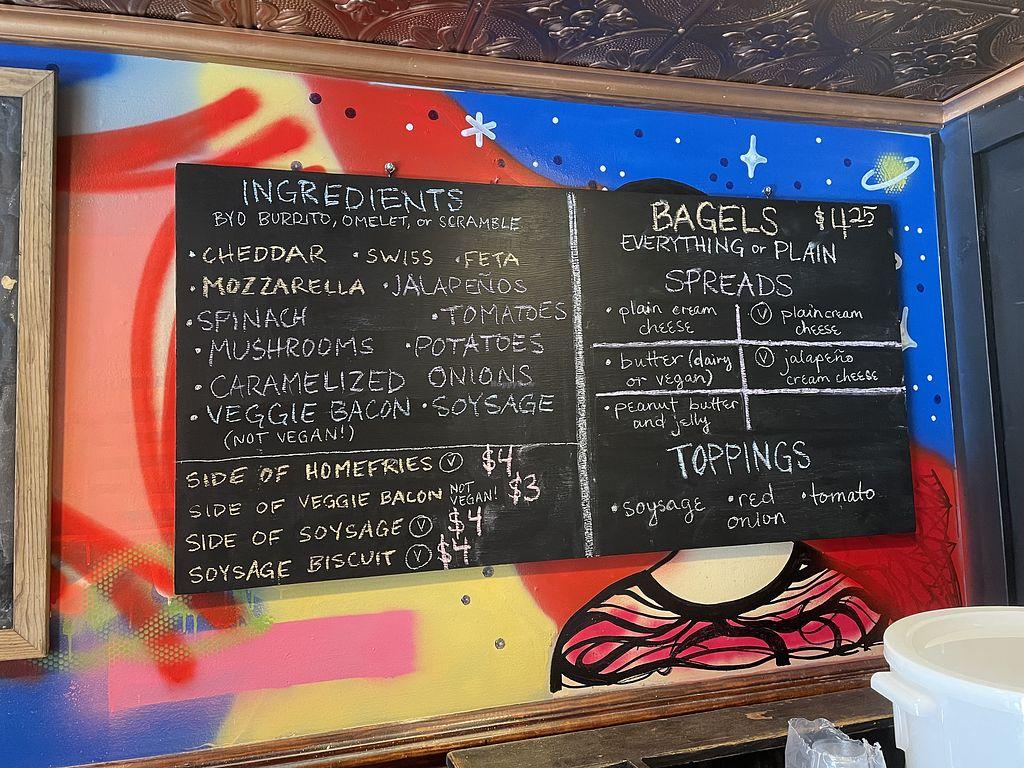 INGREDIENTS
BYO BURRITO, OMELET, or SCRAMBLE
• CHEDDAR • SWISS • FETA
• MOZZARELLA • JALAPEÑOS
• SPINACH • TOMATOES
• MUSHROOMS • POTATOES
• CARAMELIZED ONIONS
• VEGGIE BACON • SOYSAGE
(NOT VEGAN!)
SIDE OF HOMEFRIES Ⓥ $4
SIDE OF VEGGIE BACON NOT VEGAN! $3
SIDE OF SOYSAGE Ⓥ $4
SOYSAGE BISCUIT Ⓥ $4
BAGELS $4.25
EVERYTHING or PLAIN
SPREADS
• plain cream
cheese
Ⓥ plain cream
cheese
• butter (dairy
or vegan)
Ⓥ jalapeño
cream cheese
• peanut butter
and jelly
TOPPINGS
• soysage • red
onion
• tomato